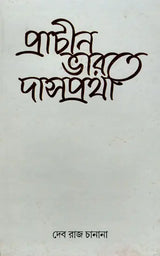 প্রাচীন
ভারতে
দাসপ্রথা
দেব রাজ চানানা